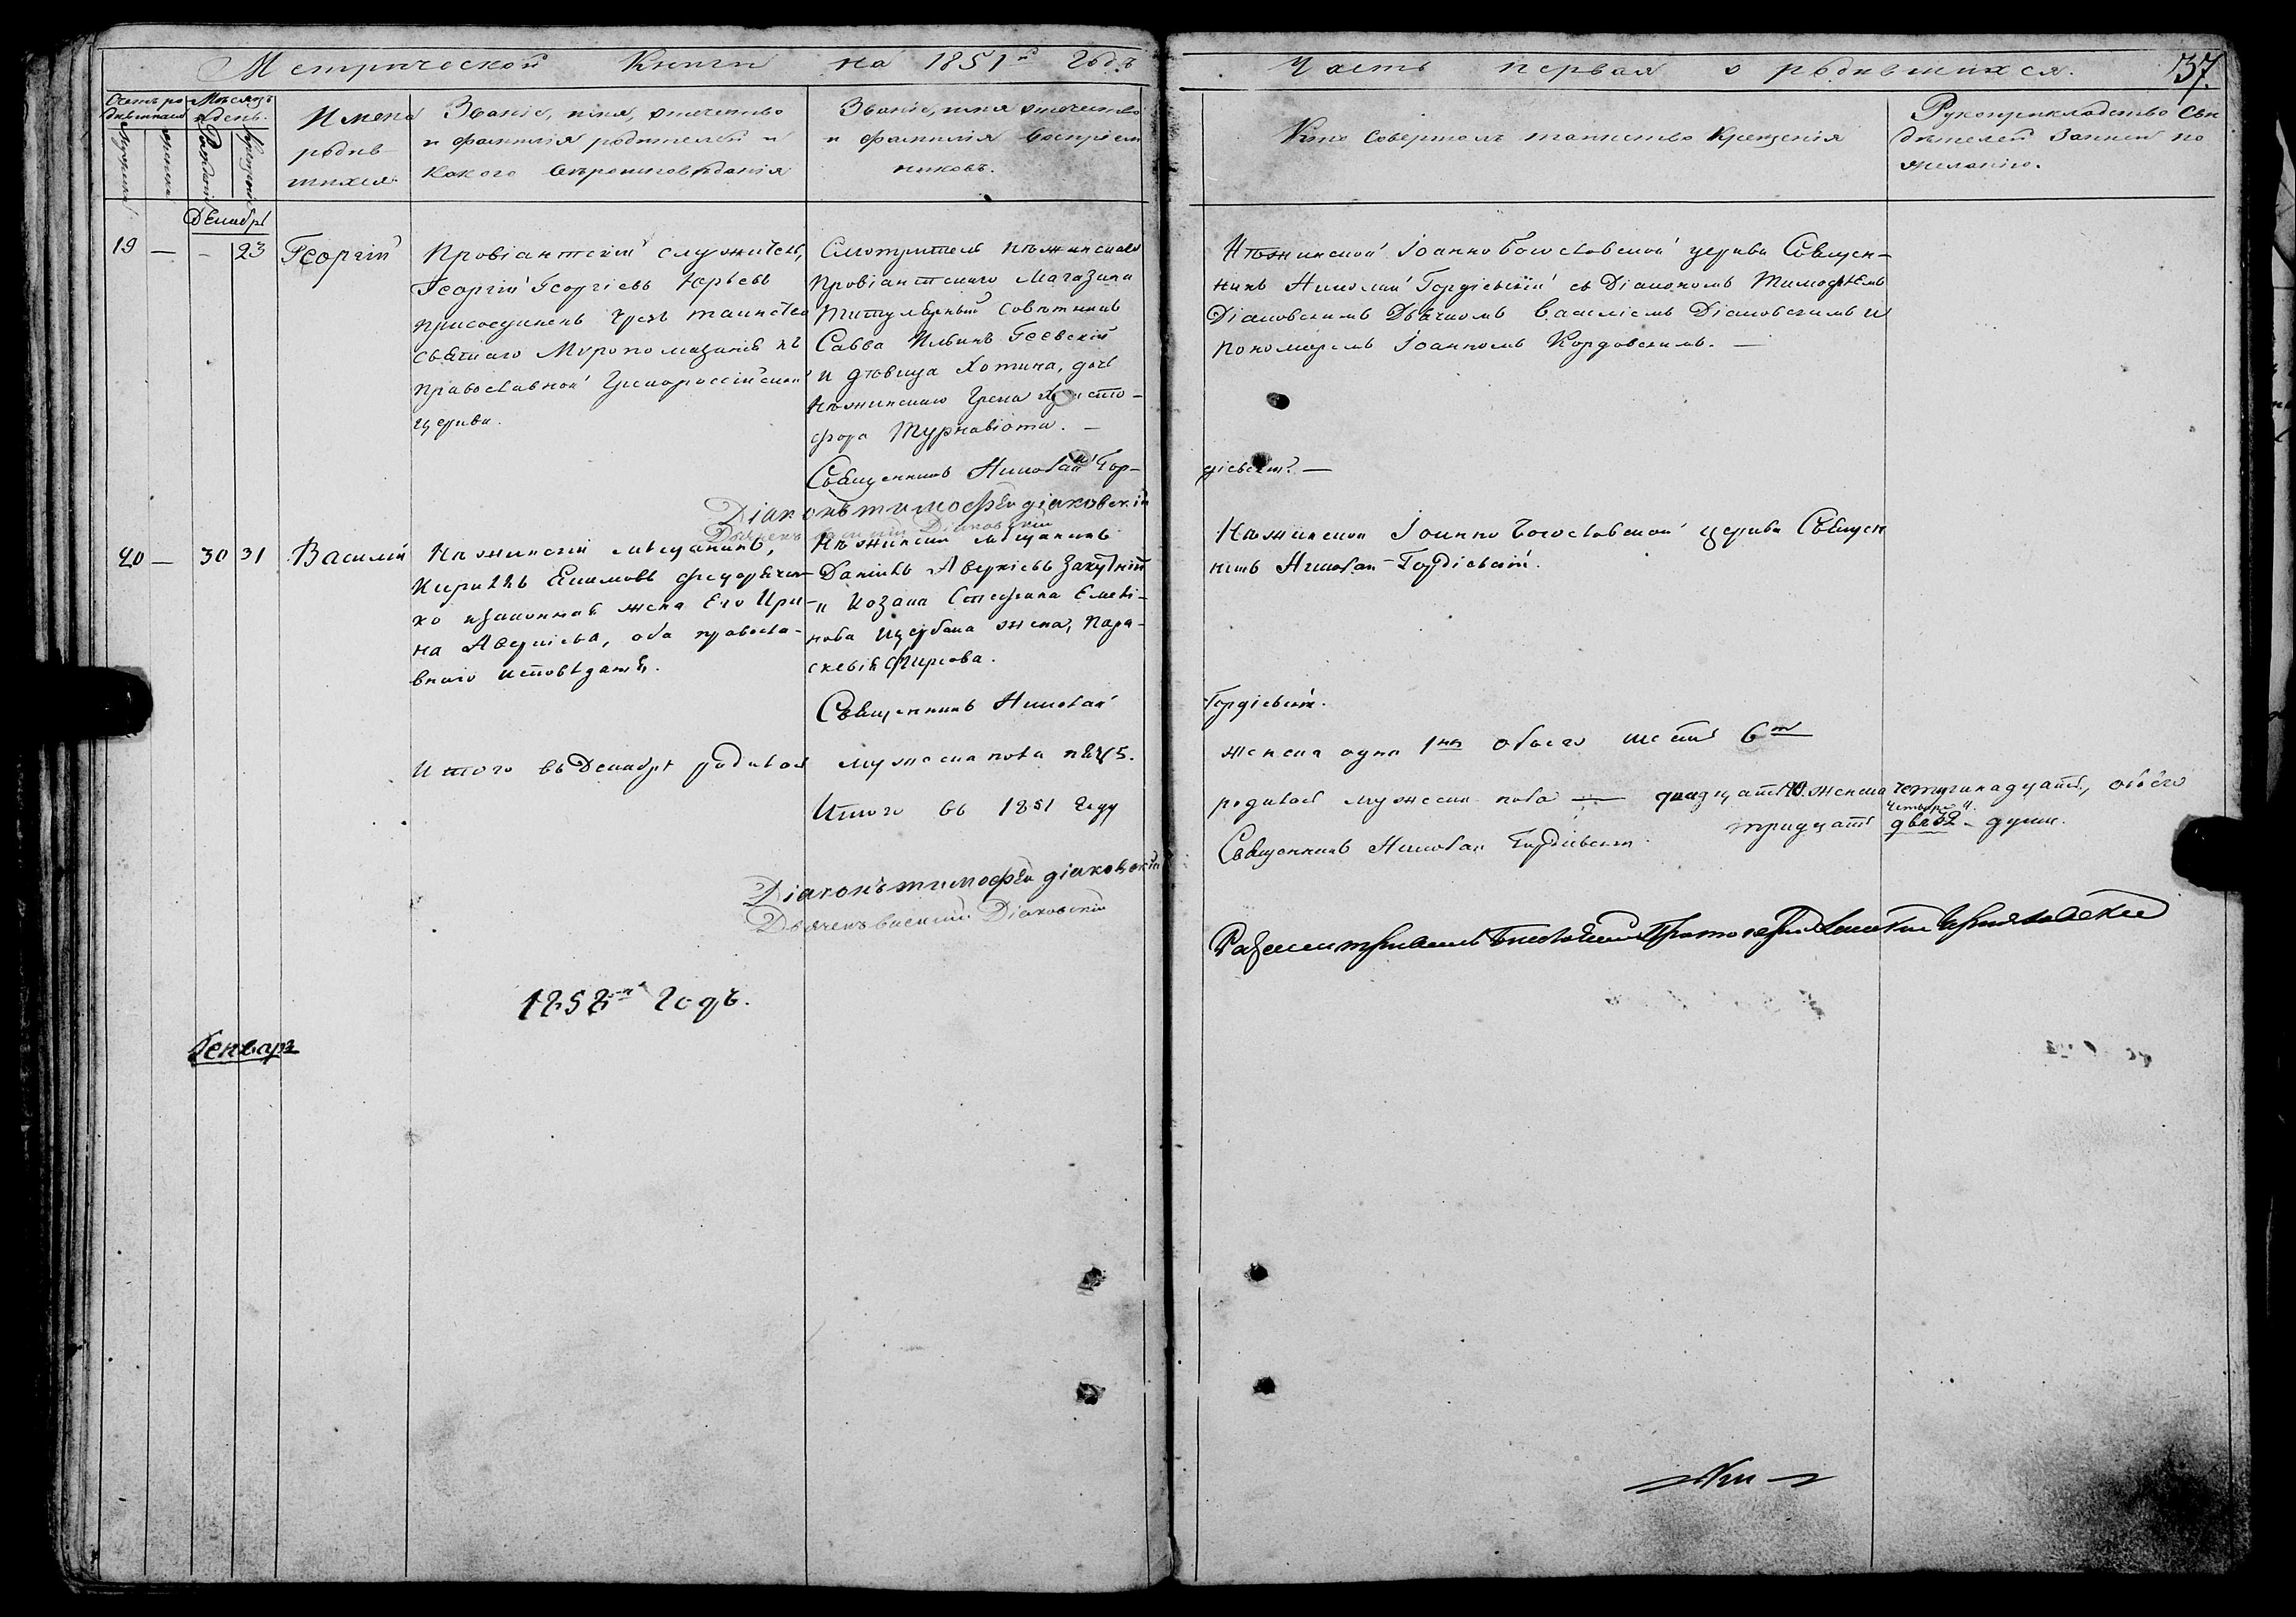 Метрической Книги на 1851й Годъ
Часть первая о родившихся.
37.
Счетъ ро
дившихся
Мѣсяцъ
и день.
Мужеска
Женска
Рожденія
Крещенія
Имена
родив
шихся.
Званіе, имя, отчество
и фамилія родителей и
какого вѣроисповѣданія
Званіе, имя отчество
и фамилія воспріем
никовъ.
Кто совершалъ таинство крещенія
Рукоприкладство сви
дѣтелей записи по
желанію.
Декабрь
19 — - 23 Георгій
Провіантскій служитель,
Георгій Георгіевъ Юрьевъ
присоединенъ чрезъ таинство
святаго Муропомазанія къ
православной Грекороссійской
церкви.
Смотритель Нѣжинскаго
Провіантскаго Магазина
Титулярный Совѣтникъ
Савва Ильинъ Геевскій
и дѣвица Хотина, дочь
Нѣжинскаго Грека Христо-
фора Турнавіоти. —
Священникъ Николай Гор-
діевскій. —
Діаконъ тимофѣй діаковскій
Дьячекъ василій Діаковскій
Нѣжинской Іоанно Богословской церкви Священ-
никъ Николай Гордіевскій съ Діакономъ Тимофѣемъ
Діаковскимъ Дьячкомъ Василіемъ Діаковскимъ и
пономаремъ Іоанномъ Кордовскимъ. —
20 — 30 31 Василій
Нѣжинскій мѣщанинъ,
Кириллъ Екимовъ Федорѣчен-
ко и законная жена Его Ири-
на Аверкіева, оба правосла-
внаго исповѣданія.
Нѣжинскій мѣщанинъ
Даніилъ Аверкіевъ Закутній
и Козака Стефана Емелья-
нова Щербака жена, Пара-
скевія Фирсова.
Священникъ Николай
Гордіевскій.
Нѣжинской Іоанно Богословской церкви Священ
никъ Николай Гордіевскій.
Итого въ Декабрѣ родилось мужеска пола пять 5.
женска одна 1на обоего шесть 6ть
Итого въ 1851 году
родилось мужеска пола — двадцать 20. женска четырнадцать, обоего
тридцать двѣ 32 - души.
четыре 4.
Священникъ Николай Гордіевскій.
Діаконъ тимофѣй діаковскій
Дьячекъ василій Діаковскій
1852й Годъ.
Генварь